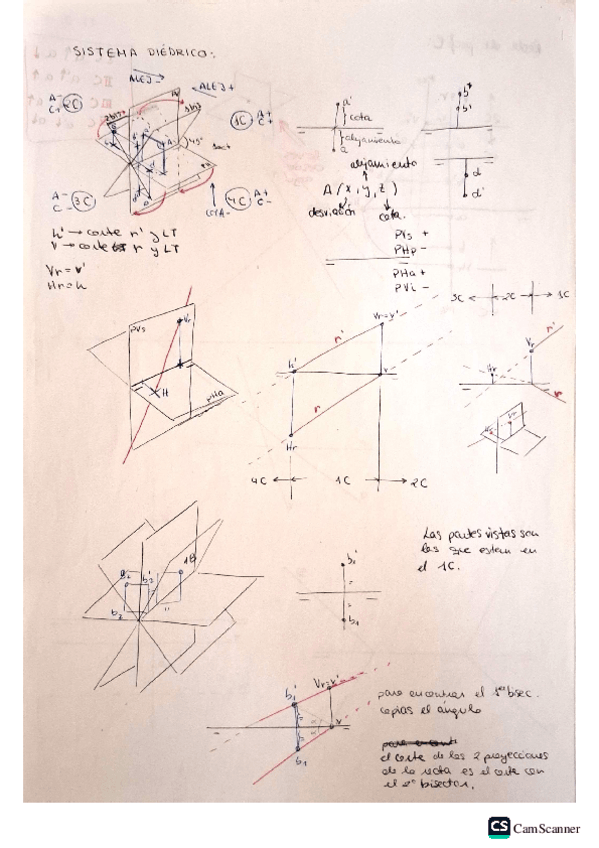 SISTEMA DIÉDRICO:
ALEJ -
ALEJ +
A- C+ 2C
1C A+ C+
45°
A- C- 3C
4C A+ C-
h' → corte r' y LT
V → corte r y LT
Vr = v'
Hr = h
a'
cota
alejamiento
a
b'
d
d'
alejamiento
A (x, y, z)
desviación
cota
PVs +
PHp -
PHa +
PVi -
PVs
Vr
H
PHa
Vr=v'
r'
h'
v
r
Hr
4C
1C
2C
3C
2C
1C
r'
Vr
Hr
r
Las partes vistas son
las que estan en
el 1C.
b1'
b1
Vr=v'
v
para encontrar el 1er bsec.
copias el ángulo
el corte de las 2 proyecciones
de la recta es el corte con
el 2º bisector.
CS CamScanner